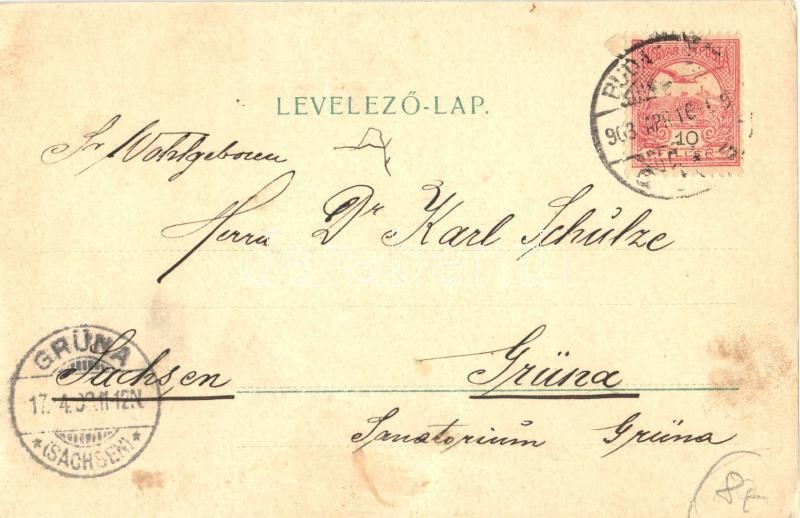 MAGYAR KIR. POSTA
BUDA
903 APR 16
10
FILLÉR
LEVELEZŐ-LAP.
Sr Wohlgeboren
Herrn Dr Karl Schulze
Sachsen Grüna
Sanatorium Grüna
GRÜNA
17. 4. 03. 11-12N.
* (SACHSEN) *